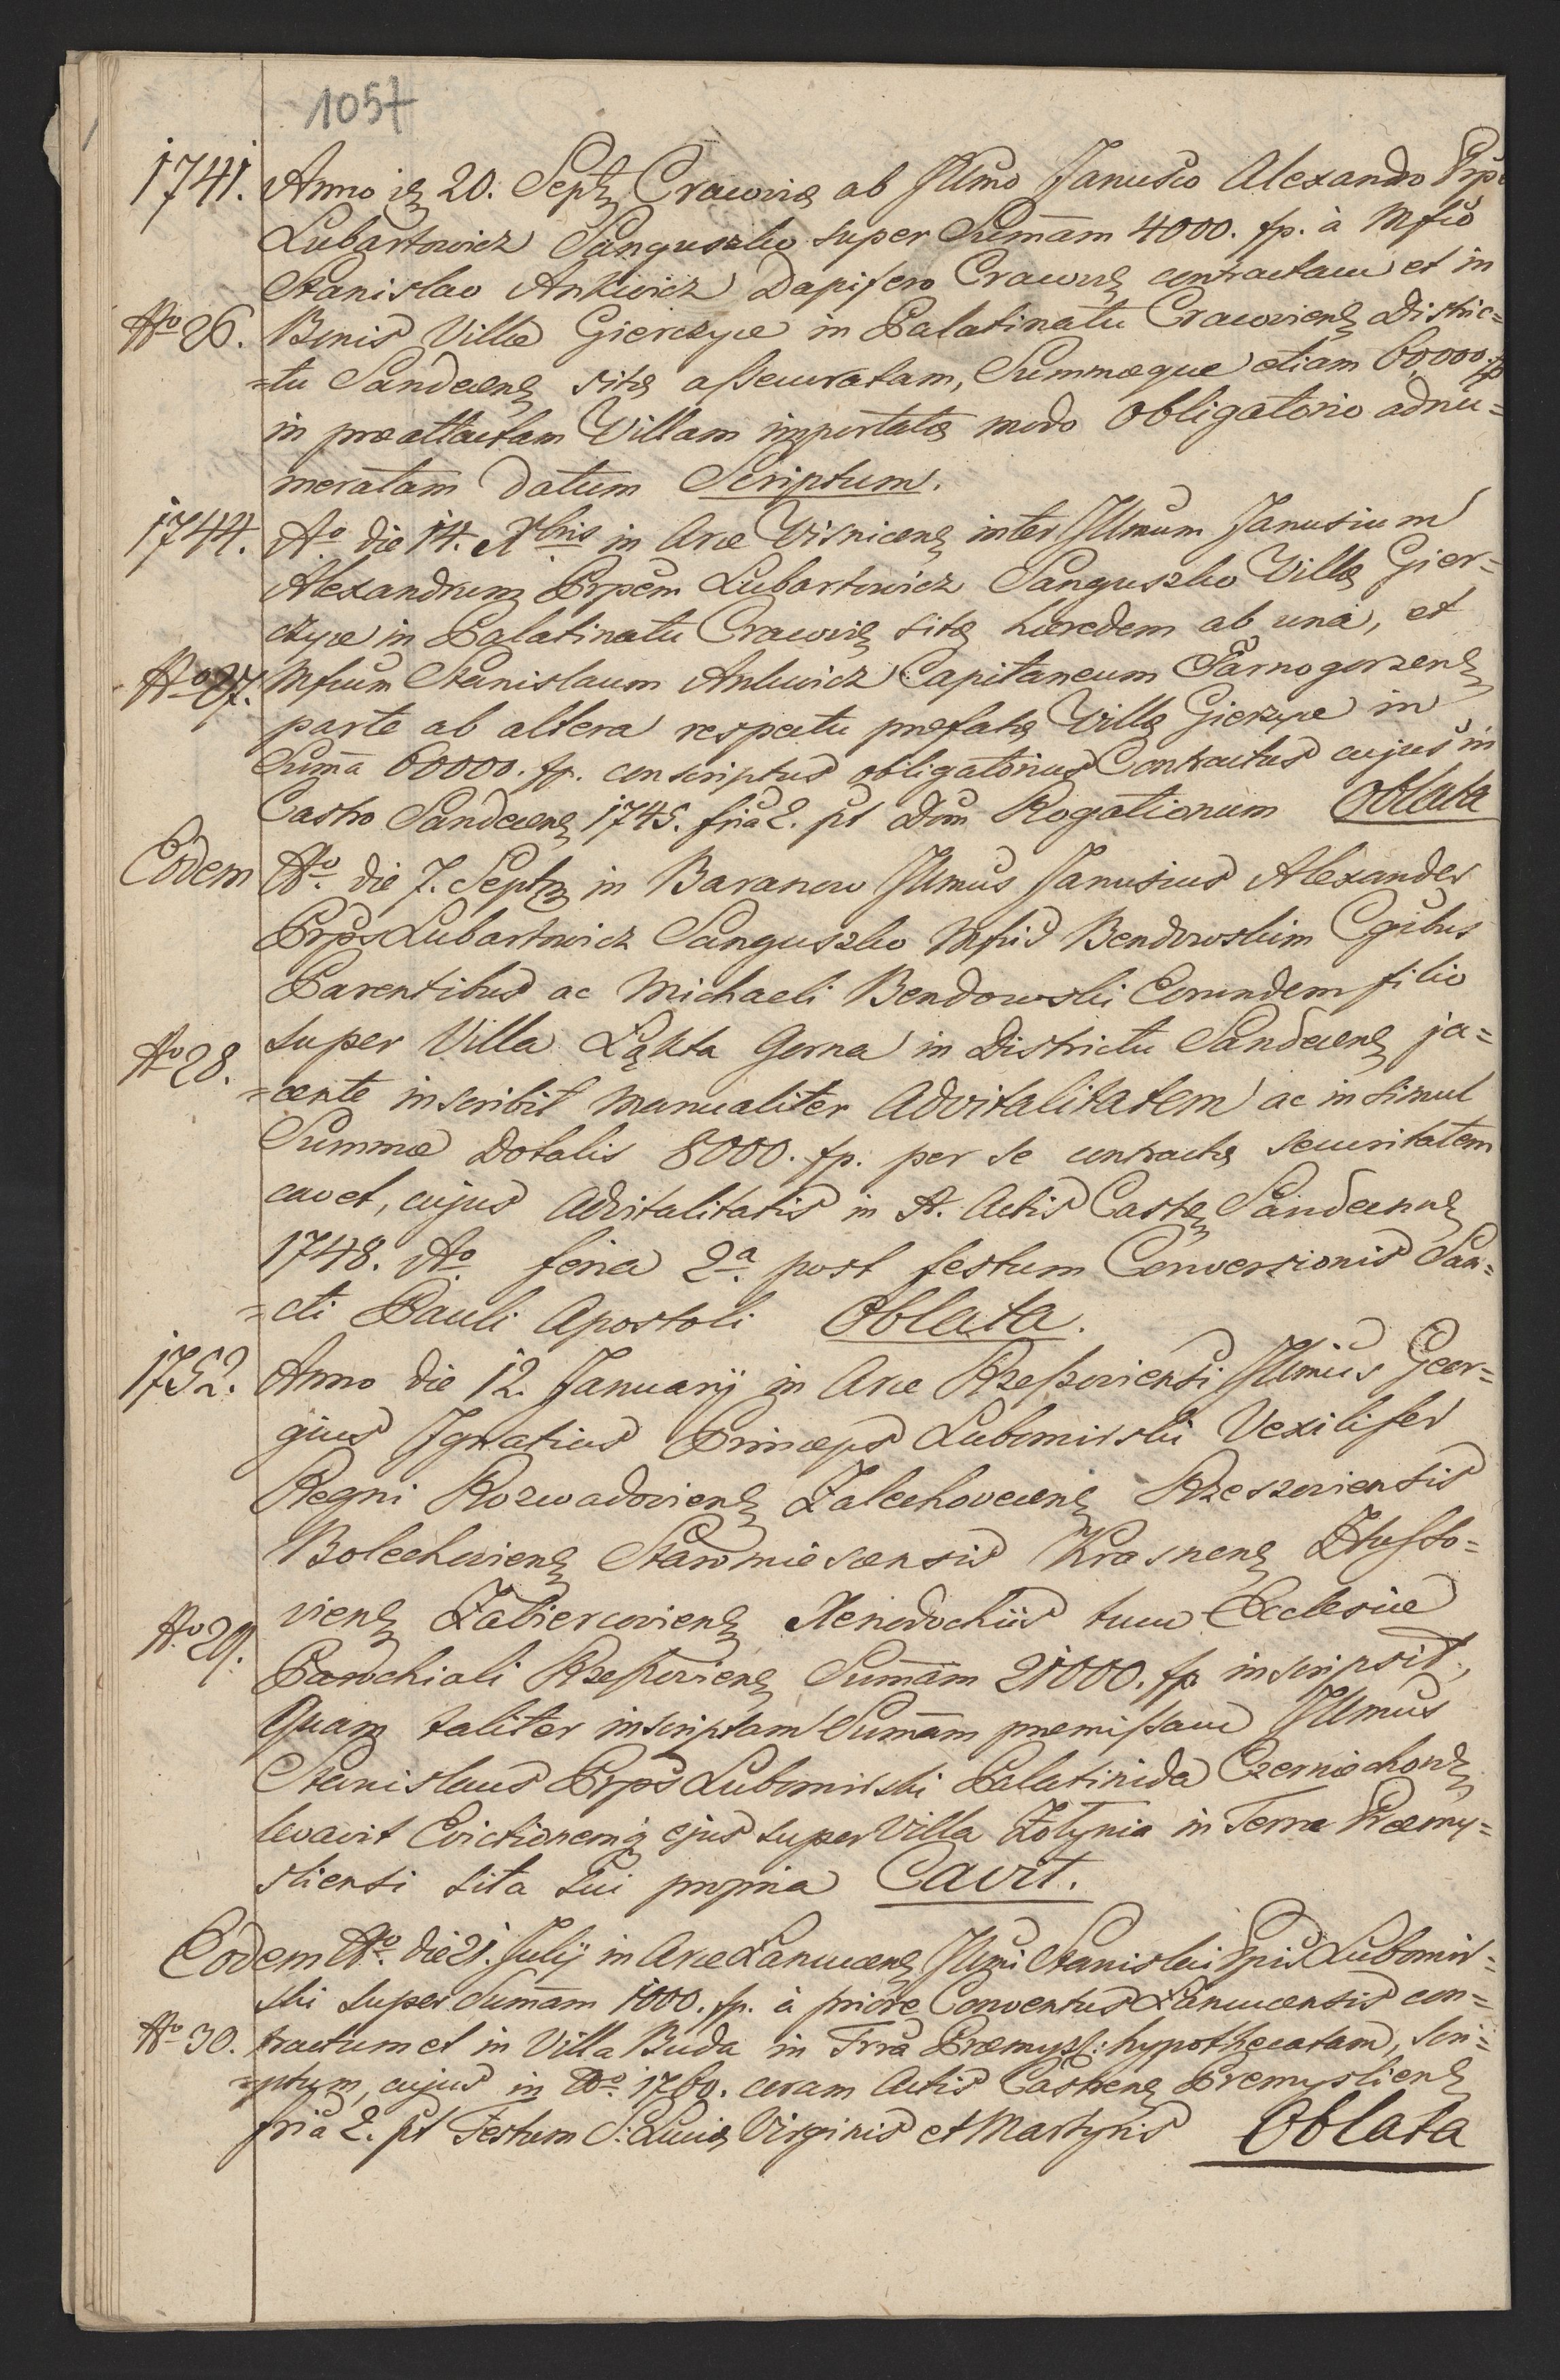 1057
1741. Anno ie 20. Septe Cracoviæ ab Illmo Janusio Alexandro Prpe
Lubartowicz Sanguszko super Sum̄am 4000. fp. à Mfco
Stanislao Ankwicz Dapifero Cracovie contractam et in
No 26. Bonis Villæ Gierczyce in Palatinatu Cracoviene Distric=
=tu Sandecene sitæ assecuratam, Summæque etiam 60,000 fp
in præattactam Villam importatæ modo obligatorio adnu=
meratam datum Scriptum.
1744. Ao die 14. Xbris in Arce Visnicene inter Illmum Janusium
Alexandrum Prpem Lubartowicz Sanguszko Villæ Gier=
czyce in Palatinatu Cracovie sitæ hæredem ab una, et
No 27. Mfcum Stanislaum Ankwicz Capitaneum Sarnogorzene
parte ab altera respectu præfatæ Villæ Gierczyce in
Sum̄a 60000. fp. conscriptus obligatorius Contractus cujus in
Castro Sandecene 1745. fria 2. pt Dom Rogationum Oblata
Eodem Ao. die 7. Septe in Baranow Illmus Janusius Alexander
Prps Lubartowicz Sanguszko Mfcis Bendowskim Cgibus
Parentibus ac Michaeli Bendowski Eorundem filio
No 28. super Villa Łąkta Gorna in Districtu Sandecene ja=
=cente inscribit manualiter advitalitatem ac in simul
Summæ Dotalis 8000. fp. per se contractæ securitatem
cavet, cujus advitalitatis in A. Actis Castre Sandecene
1748. Ao feria 2a. post festum Conversionis San=
=cti Pauli Apostoli Oblata.
1752. Anno die 12. Januarij in Arce Rzeszoviensi Illmus Geor=
gius Ignatius Princeps Lubomirski Vexilifer
Regni Rozwadoviene Zalechovecene Rzeszoviensis
Bolechoviene Staromiescensis Krasnene
No 29. viene Zabiercoviene Xenodochiis tum Ecclesiæ
Parochiali Rzeszoviene Sum̄am 21000. fp. inscripsit,
Quam taliter inscriptam Sum̄am præmissam Illmus
Stanislaus Prps Lubomirski Palatinida Czerniechovie
levavit Evictionemq ejus super Villa Żołynia in Terra Præmy=
sliensi sita sui propria Cavit.
Eodem Ao. die 21. Julij in Arce Lancucene Illmi Stanislai Prpis Lubomir=
ski super Sum̄am 1000. fp. à priore Conventus Lancucensis con=
No 30. tractum et in Villa Buda in Trra Præmysl: hypothecatam, scri=
=ptum, cujus in Ao. 1760. coram Actis Castrene Premysliene
fria 2. pt Festum S: Luciæ Virginis et Martyris Oblata